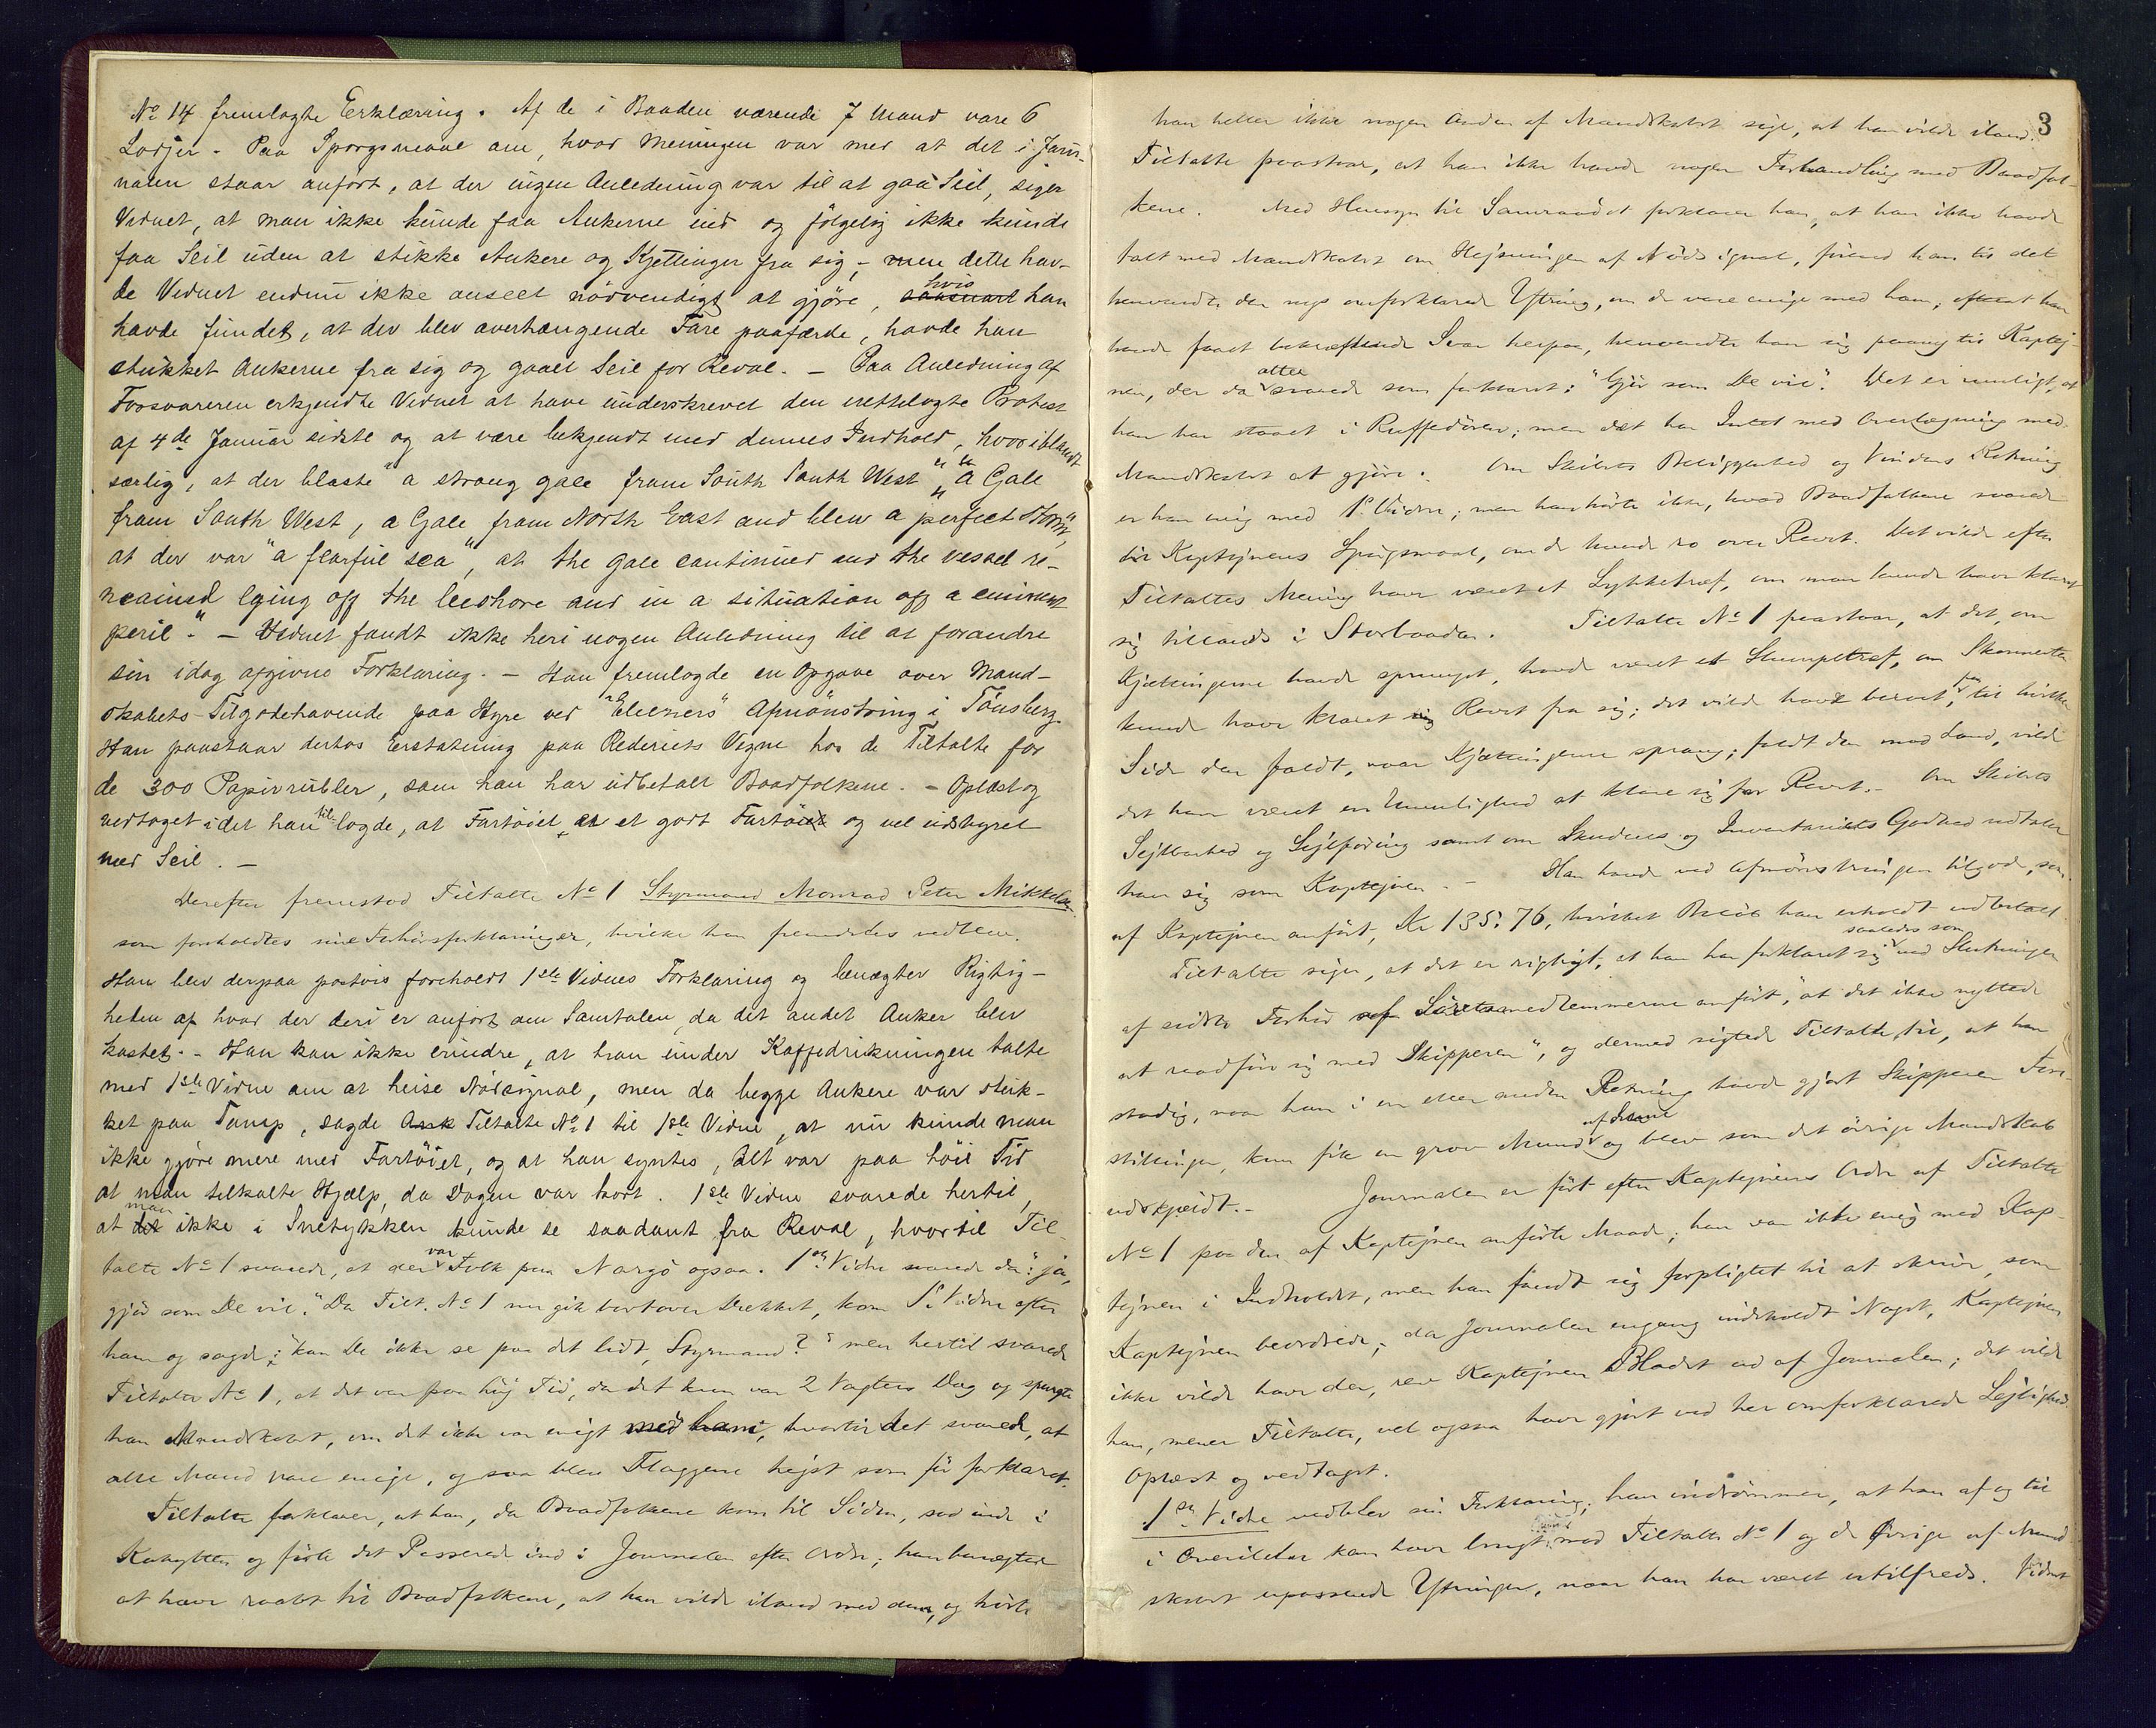 No 14 fremlagte Erklæring. Af de i Baaden værende 7 Mand vare 6
Lodser. Paa Spørgsmaal om, hvad Meningen var med at det i Jour-
nalen staar anført, at der ingen Anledning var til at gaa Seil, siger
Vidnet, at man ikke kunde faa Ankerne ind og følgelig ikke kunde
faa Seil uden at stikke Ankere og Kjettinger fra sig, - men dette hav-
de Vidnet endnu ikke anseet nødvendigt at gjøre, saasnart hvis han
havde fundet, at der blev overhængende Fare paafærde, havde han
stukket Ankerne fra sig og gaaet Seil for Reval. - Paa Anledning af
Forsvareren erkjendte Vidnet at have underskrevet den rettelagte Protest
af 4de Januar sidste og at være bekjendt med dennes Indhold, hvoriblandt
særlig, at der blæste "a strong gale from South South West", "a Gale
from South West, a Gale from North East and blew a perfect storm",
at der var "a fearful sea", at the gale continued and the vessel re-
mained lying off the leeshore and in a situation off a eminent
peril". - Vidnet fandt ikke heri nogen Anledning til at forandre
sin idag afgivne Forklaring. - Han fremlagde en Opgave over Mand-
skabets Tilgodehavende paa Hyre ved "Eliezers" Afmønstring i Tønsberg.
Han paastaar derhos Erstatning paa Rederiets Vegne hos de Tiltalte for
de 300 Papirrubler, som han har udbetalt Baadfolkene. - Oplæst og
vedtaget idet han tillagde, at Fartøiet er et godt Fartøiet og vel udstyret
med Seil. -
Derefter fremstod Tiltalte No 1 Styrmand Monrad Peter Mikkelsen
som foreholdtes sine Forhørsforklaringer, hvilke han fremdeles vedtog.
Han blev derpaa postvis foreholdt 1ste Vidnes Forklaring og benægter Rigtig-
heden af hvad der deri er anført om Samtalen, da det andet Anker blev
kastet. - Han kan ikke erindre, at han under Kaffedrikningen talte
med 1ste Vidne om at heise Nødsignal, men da begge Ankere var stuk-
ket paa Tamp, sagde Tiltalte No 1 til 1ste Vidne, at nu kunde man
ikke gjøre mere med Fartøiet, og at han syntes, det var paa høie Tid
at man tilkaldte Hjælp, da Dagen var kort. 1ste Vidne svarede hertil,
at det man ikke i Snetykken kunde se saadant fra Reval, hvortil Til-
talte No 1 svarede, at der var Folk paa Nargø ogsaa. 1ste Vidne svarede da: "ja,
gjør som De vil." Da Tilt. No 1 nu gik bortover Dækket, kom 1ste Vidne efter
ham og sagde: "kan De ikke se paa det lidt, Styrmand?" men hertil svarede
Tiltalte No 1, at det var paa høj Tid, da det kun var 2 Vagters Dag og spurgte
han Mandskabet, om det ikke var enigt med ham, hvortil det svarede, at
alle Mand vare enige, og saa blev Flaggene hejst som før forklaret.
Tiltalte forklarer, at han, da Baadfolkene kom til Siden, sad inde i
Kahytten og førte det Passerede ind i Journalen efter Ordre; han benægtede
at have raabt til Baadfolkene, at han vilde iland med dem, og hørte
3
han heller ikke nogen Anden af Mandskabet sige, at han vilde iland.
Tiltalte paastaar, at han ikke havde nogen Forhandling med Baadfol-
kene. Med Hensyn til Samraadet forklarer han, at han ikke havde
talt med Mandskabet om Hejsningen af Nødsignal, førend han til det
henvendte den nys omforklarede Yttring, om de vare enige med ham; efterat han
havde faaet bekræftende Svar herpaa, henvendte han sig paany til Kaptej-
nen, der da atter svarede som forklaret: "Gjør som De vil". Det er muligt, at
han har staaet i Ruffedøren; men det har Intet med Overlægning med
Mandskabet at gjøre. Om Skibets Beliggenhed og Vindens Retning
er han enig med 1ste Vidne; men han hørte ikke, hvad Baadfolkene svarede
til Kaptejnens Spørgsmaal, om de kunde ro over Revet. Det vilde efter
Tiltaltes Mening have været et Lykketræf, om man kunde have klaret
sig tillands i Storbaaden. Tiltalte No 1 paastaar, at det, om
Kjættingerne havde sprunget, havde været et Slumpetræf, om Skonnerten
kunde have klaret sig Revet fra sig; det vilde have beroet paa, til hvilken
Side den faldt, naar Kjættingerne sprang; faldt den mod Land, vilde
det have været en Umulighed at klare sig for Revet. - Om Skibets
Sejlbarhed og Sejlføring samt om Skudens og Inventariets Godhed udtaler
han sig som Kaptejnen. - Han havde ved Afmønstringen tilgode, som
af Kaptejnen anført, Kr 135.76, hvilket Beløb han erholdt udbetalt.
Tiltalte siger, at det er rigtigt, at han har forklaret sig saaledes som ved Slutningen
af sidste Forhør af Søretsmedlemmerne anført, "at det ikke nyttede
at raadføre sig med Skipperen", og dermed sigtede Tiltalte til, at han
stadig, naar han i en eller anden Retning havde gjort Skipperen Fore-
stillinger, kun fik en grov Mund af ham og blev som det øvrige Mandskab
udskjældt. - Journalen er ført efter Kaptejnens Ordre af Tiltalte
No 1 paa den af Kaptejnen anførte Maade; han var ikke enig med Kap-
tejnen i Indholdet, men han fandt sig forpligtet til at skrive, som
Kaptejnen beordrede; da Journalen engang indeholdt Noget, Kaptejnen
ikke vilde have der, rev Kaptejnen Bladet ud af Journalen; det vilde
han, mener Tiltalte, vel ogsaa have gjort ved her omforklarede Lejlighed.
Oplæst og vedtaget.
1ste Vidne vedblev sin Forklaring; han indrømmer, at han af og til
i Overilelse kan have brugt mod Tiltalte No 1 og de Øvrige af Mand
skabet upassende Yttringer, naar han har været utilfreds. Vidnet